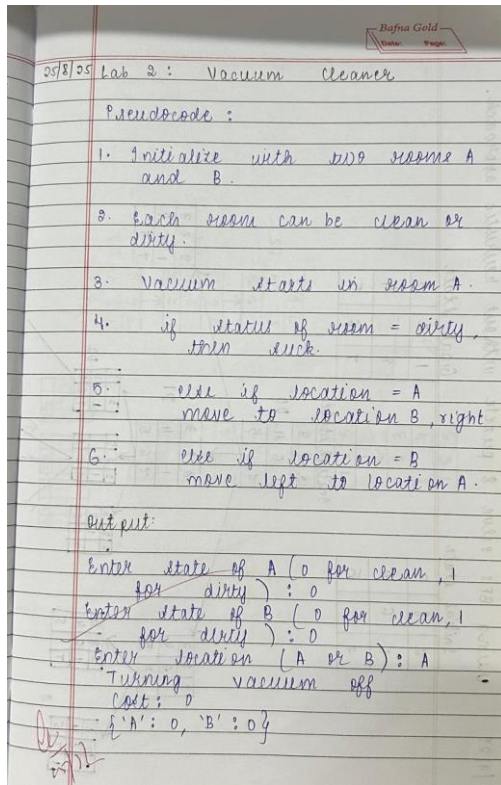 Bafna Gold
Date: Page:
25/8/25 Lab 2 : Vacuum Cleaner
Pseudocode :
1. Initialize with two rooms A
and B.
2. Each room can be clean or
dirty.
3. Vacuum starts in room A.
4. if status of room = dirty,
then suck.
5. else if location = A
move to location B, right
6. else if location = B
move left to location A.
Output:
Enter state of A (0 for clean, 1
for dirty) : 0
Enter state of B (0 for clean, 1
for dirty) : 0
Enter location (A or B) : A
Turning vacuum off
Cost : 0
{'A': 0, 'B': 0}